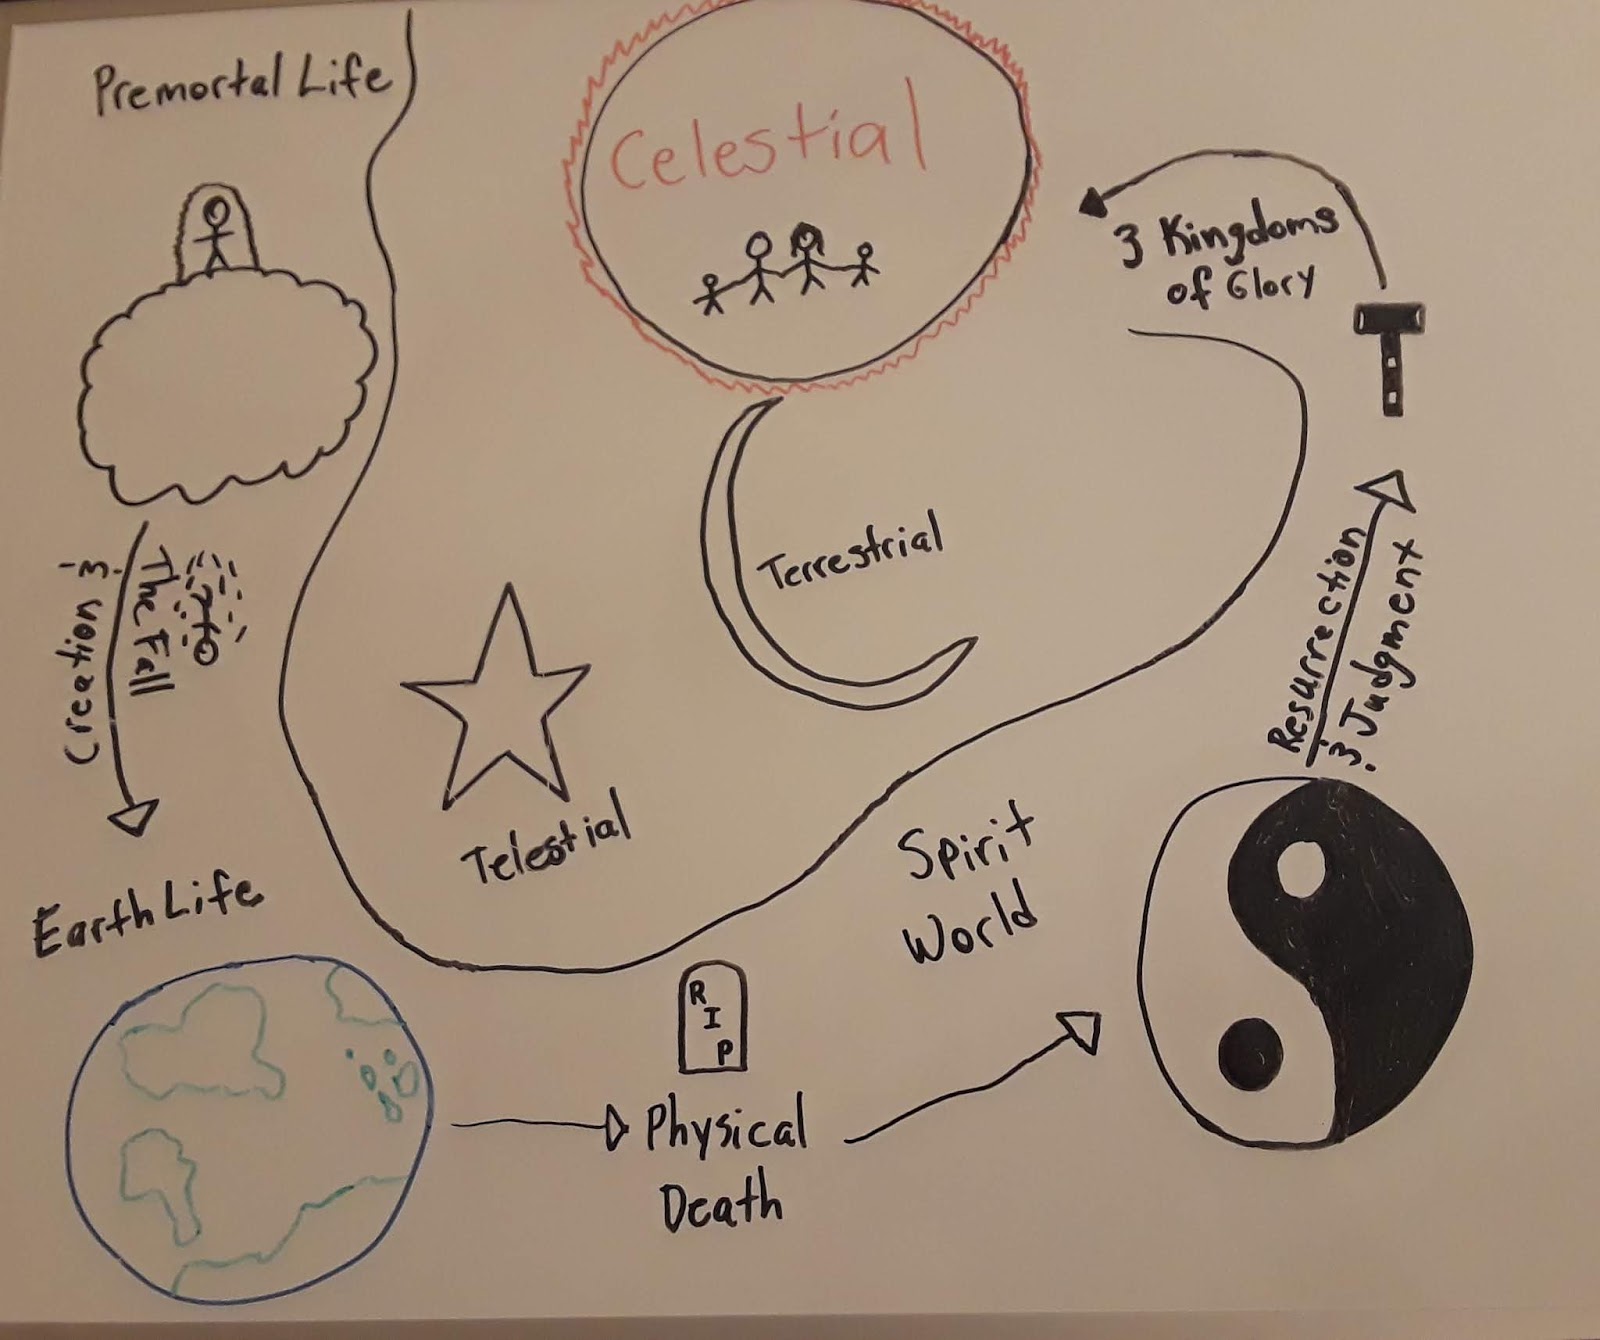 Premortal Life
Celestial
3 Kingdoms
of Glory
Creation &
The Fall
Terrestrial
Telestial
Resurrection
& Judgment
Earth Life
Spirit
World
R
I
P
Physical
Death